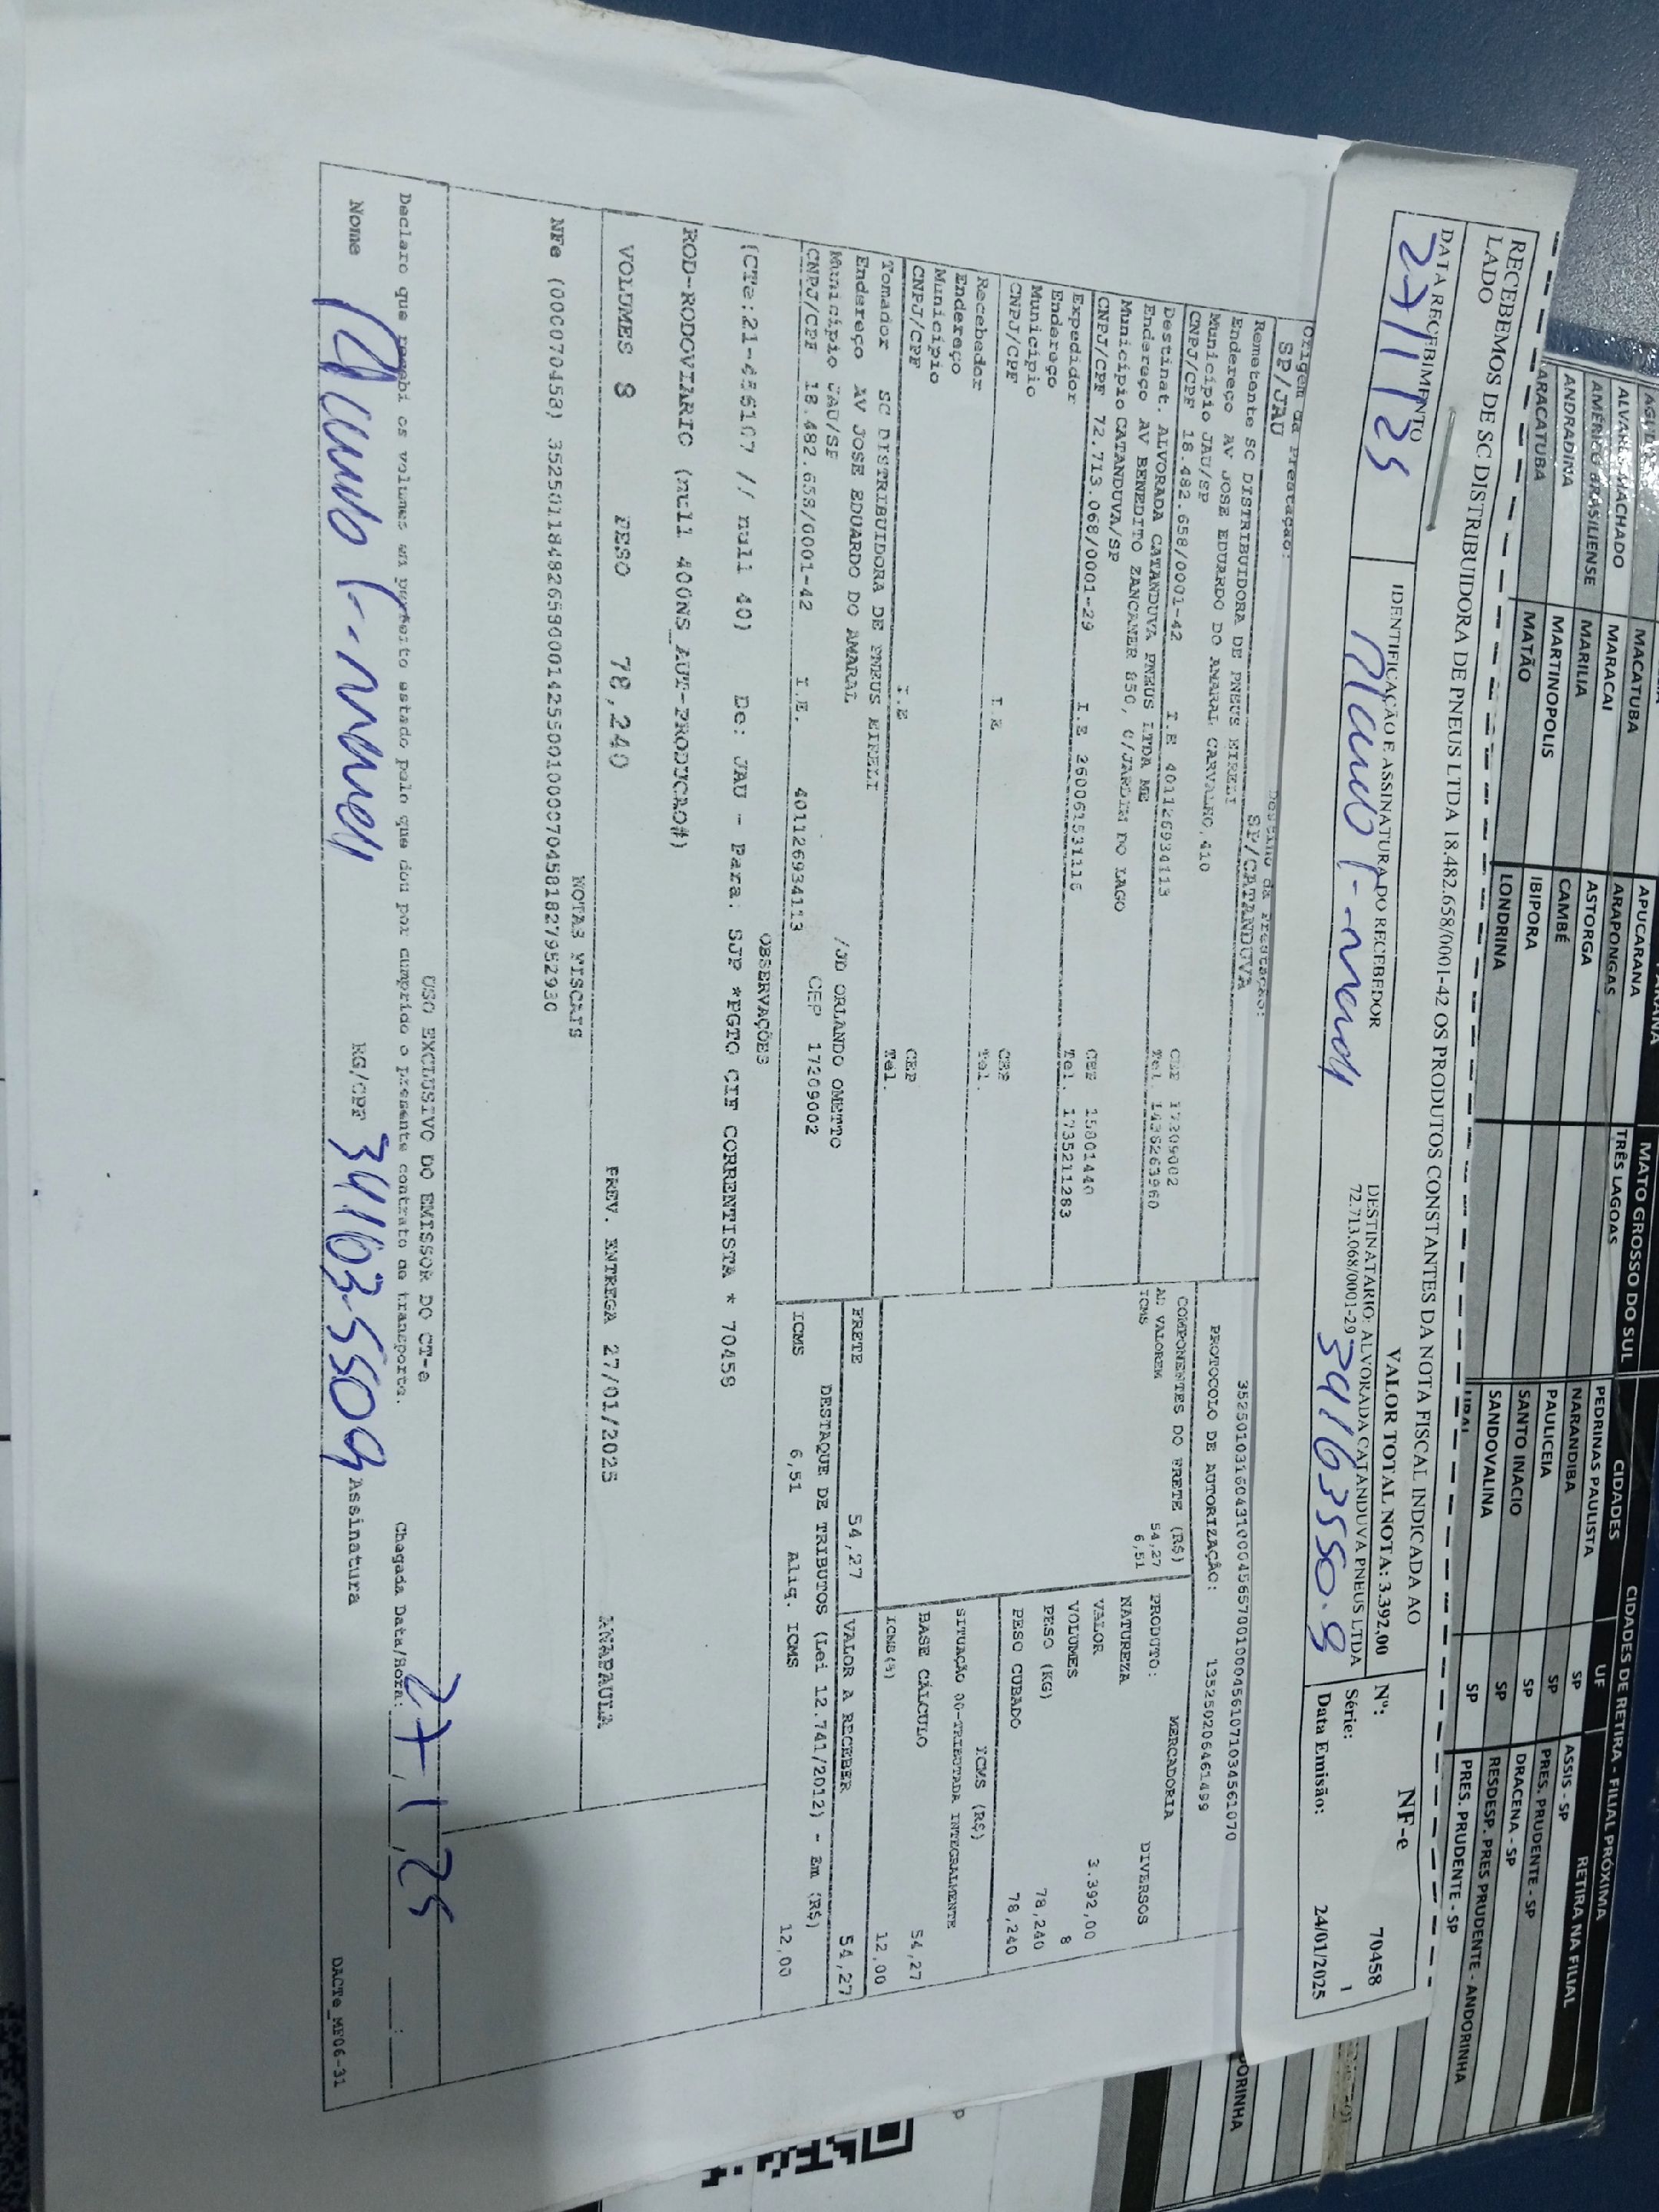 MACATUBA
APUCARANA
MATO GROSSO DO SUL
CIDADES DE RETIRA - FILIAL PRÓXIMA
ALVARES MACHADO
MARACAI
ARAPONGAS
TRÊS LAGOAS
CIDADES
UF
RETIRA NA FILIAL
AMÉRICO BRASILIENSE
MARILIA
ASTORGA
PEDRINAS PAULISTA
SP
ASSIS - SP
ANDRADINA
MARTINOPOLIS
CAMBÉ
NARANDIBA
SP
PRES. PRUDENTE - SP
ARACATUBA
MATÃO
IBIPORA
PAULICEIA
SP
DRACENA - SP
LONDRINA
SANTO INACIO
SP
RESDESP. PRES PRUDENTE - ANDORINHA
SANDOVALINA
SP
PRES. PRUDENTE - SP
RECEBEMOS DE SC DISTRIBUIDORA DE PNEUS LTDA 18.482.658/0001-42 OS PRODUTOS CONSTANTES DA NOTA FISCAL INDICADA AO
LADO
VALOR TOTAL NOTA: 3.392,00
NF-e
DATA RECEBIMENTO
IDENTIFICAÇÃO E ASSINATURA DO RECEBEDOR
DESTINATÁRIO: ALVORADA CATANDUVA PNEUS LTDA
72.713.068/0001-29
Nº: 70458
Série: 1
Data Emissão: 24/01/2025
27/1/25
34163550.9
Origem da Prestação:
SP/JAU
Destino da Prestação:
SP/CATANDUVA
PROTOCOLO DE AUTORIZAÇÃO: 135250206461499
Remetente SC DISTRIBUIDORA DE PNEUS EIRELI
Endereço AV JOSE EDUARDO DO AMARAL CARVALHO,410
Município JAU/SP CEP 17209002
CNPJ/CPF 18.482.658/0001-42 I.E 401126934113 Tel. 1436263960
Destinat. ALVORADA CATANDUVA PNEUS LTDA ME
Endereço AV BENEDITO ZANCANER 850, C/JARDIM DO LAGO
Município CATANDUVA/SP CEP 15801440
CNPJ/CPF 72.713.068/0001-29 I.E 260061531116 Tel. 1735211283
Expedidor
Endereço
Município CEP
CNPJ/CPF I.E Tel.
Recebedor
Endereço
Município CEP
CNPJ/CPF I.E Tel.
Tomador SC DISTRIBUIDORA DE PNEUS EIRELI
Endereço AV JOSE EDUARDO DO AMARAL /JD ORLANDO OMETTO
Município JAU/SP CEP 17209002
CNPJ/CPF 18.482.658/0001-42 I.E. 401126934113
COMPONENTES DO FRETE (R$)
AD VALOREM 54,27
ICMS 6,51
MERCADORIA
PRODUTO: DIVERSOS
NATUREZA
VALOR 3.392,00
VOLUMES 8
PESO (KG) 78,240
PESO CUBADO 78,240
ICMS (R$)
SITUAÇÃO 00-TRIBUTADA INTEGRALMENTE
BASE CÁLCULO 54,27
ICMS(%) 12,00
FRETE 54,27
VALOR A RECEBER 54,27
DESTAQUE DE TRIBUTOS (Lei 12.741/2012) - Em (R$)
ICMS 6,51 Aliq. ICMS 12,00
OBSERVAÇÕES
(CTe:21-456107 // null 40) De: JAU - Para: SJP *PGTO CIF CORRENTISTA * 70458
ROD-RODOVIARIO (null 400NS_AUT-PRODUCAO#)
VOLUMES 8 PESO 78,240 PREV. ENTREGA 27/01/2025 ANAPAULA
NOTAS FISCAIS
NFe (000070458) 35250118482658000142550010000704581827952930
USO EXCLUSIVO DO EMISSOR DO CT-e
Declaro que recebi os volumes em perfeito estado pelo que dou por cumprido o presente contrato de transporte.
Chegada Data/Hora: 27/1/25
Nome
RG/CPF 34163.5509
Assinatura
DACTe_MP06-31